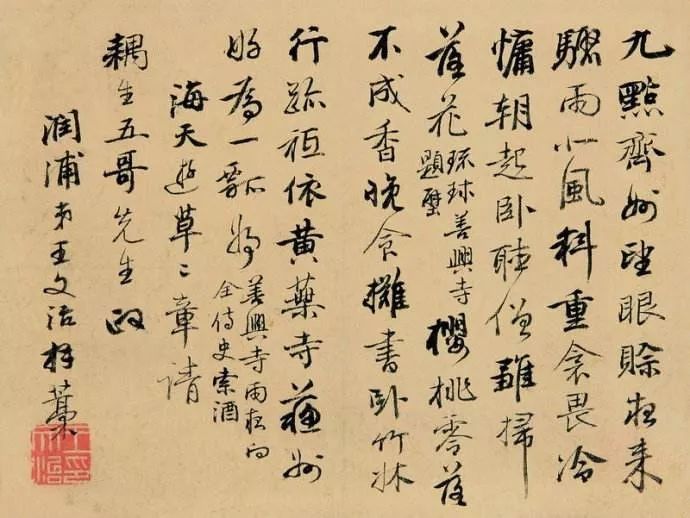 九點齊州望眼賒夜來
驟雨北風斜重衾畏冷
慵朝起臥聽僧雛掃
落花
琉球善興寺
題壁
櫻桃零落
不成香晚食攤書臥竹牀
行跡祗依黃蘗寺州
好為一瓢
善興寺雨夜向
全侍史索酒
海天遊草二章請
耦生五哥先生政
潤浦弟王文治拜藁